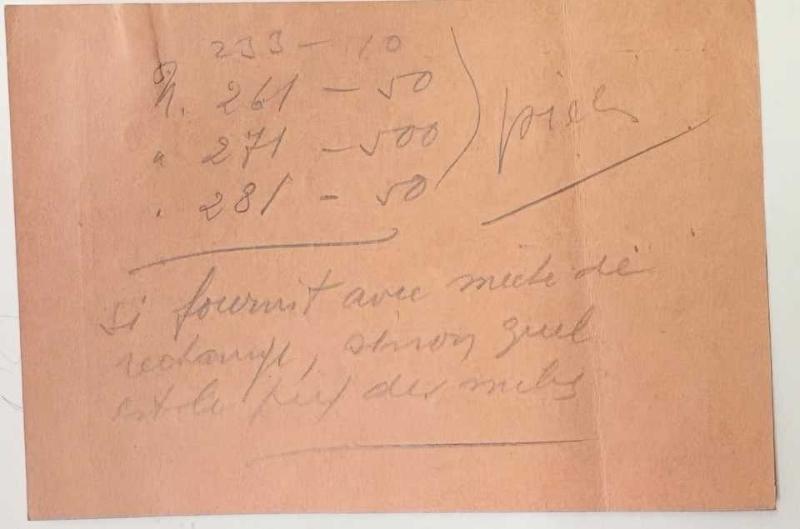 233 — 10
N. 261 — 50
" 271 — 500
" 281 — 50
prix
si fournit avec mèche de
rechange, sinon quel
est le prix des mèches